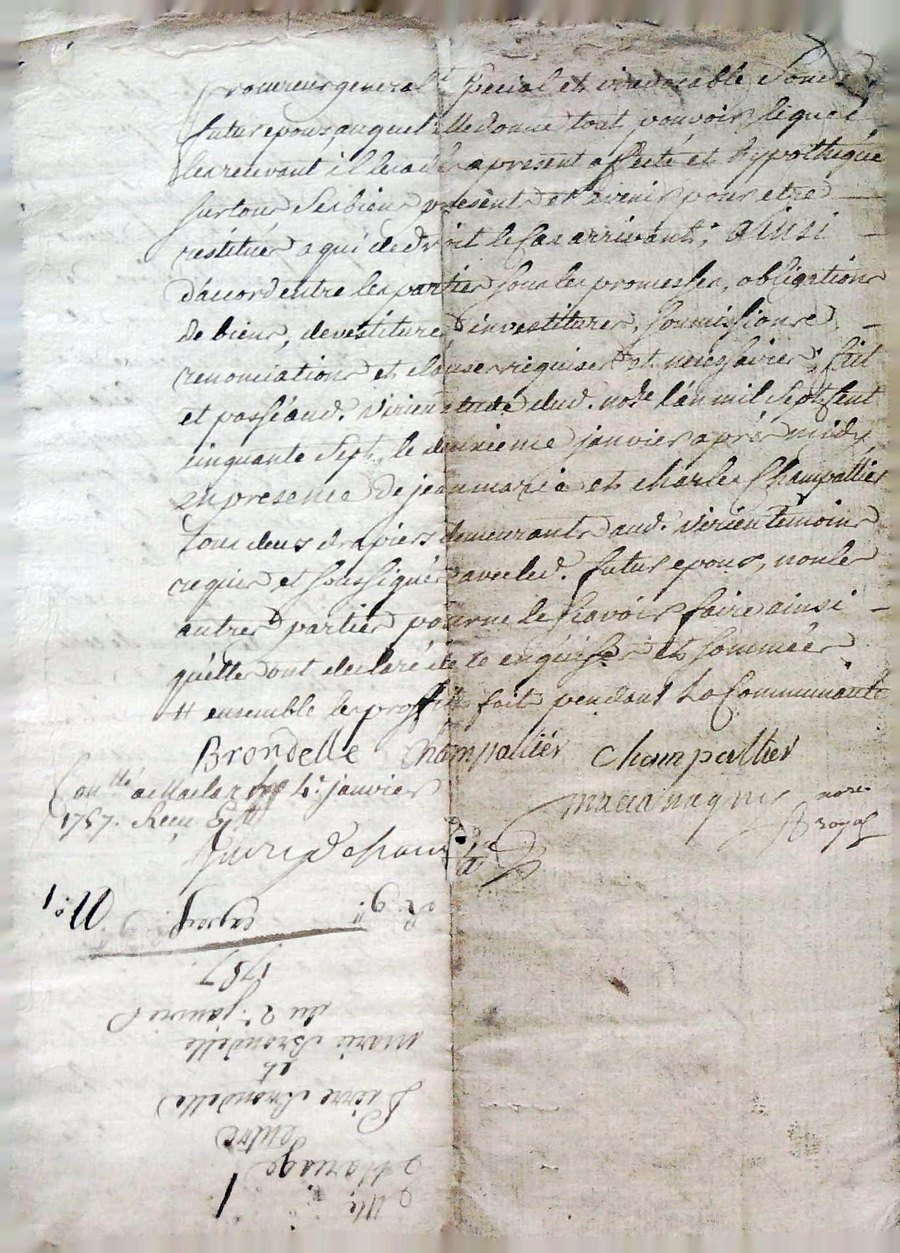 procureur general special et irrevocable
futur epoux auquel elle donne tout pouvoir, lequel
les recevant il les a dès a present affecté et hypothequé
sur tous ses biens présents et avenir pour etre
réstitués a qui de droit le Cas arrivant; ainsi
d'accord entre les parties sous les promesses, obligations
de biens, devestitures investitures, soumissions,
renonciations et clauses requises et necessaires; fait
et passé aud. virieu etude dud. nore. l'an mil sept cent
cinquante sept, le deuxieme janvier aprés midy
en presence de jean marie et charles Champallier
tous deux drapiers demeurants aud. virieu temoins
requis et soussignés avec led. futur epoux, non les
autres parties pour ne le sçavoir faire ainsi
qu'elles ont declaré de ce enquises et sommées
# ensemble les proffits fait pendant La Communauté
Brondelle Champallier Champallier
nore.
royal
Conllé a Maclas le 4e. janvier
1757. Recu
9
1757
du 2e. janvier
marie Brondelle
et
Pierre Brondelle
entre
Mariage